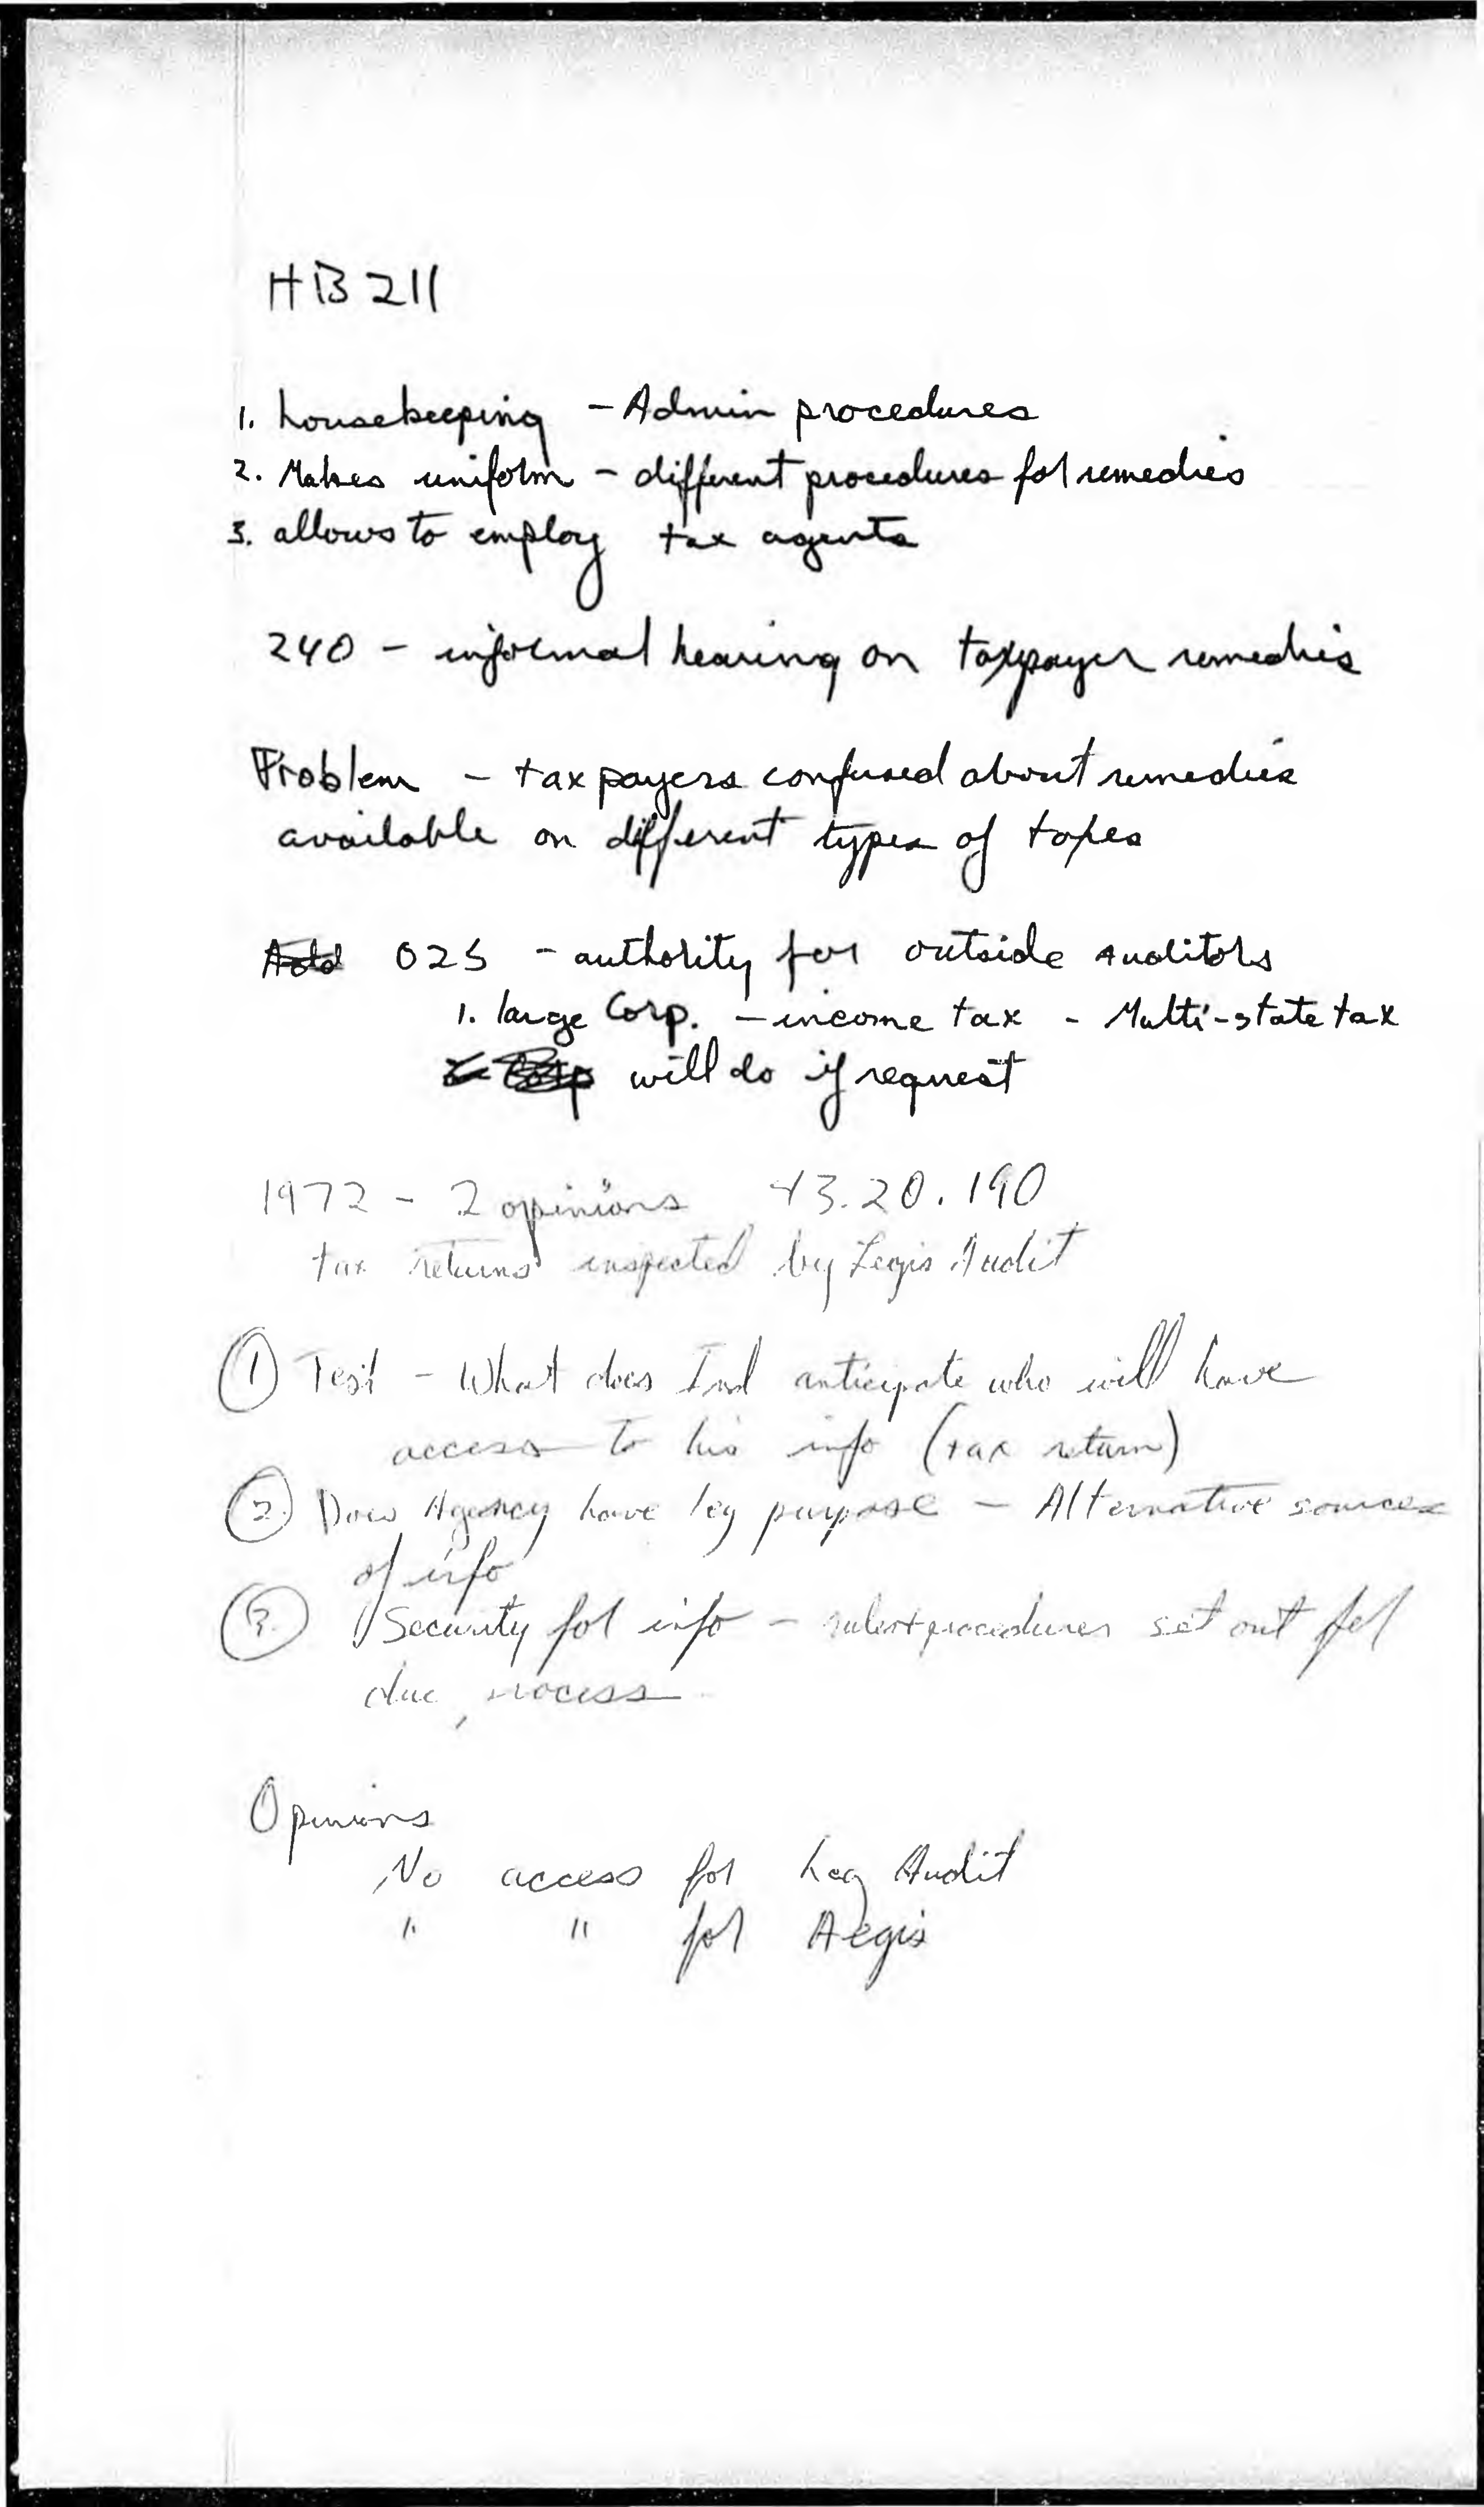 HB 211
1. housekeeping - Admin procedures
2. Makes uniform - different procedures for remedies
3. allows to employ tax agents
240 - informal hearing on taxpayer remedies
Problem - taxpayers confused about remedies
available on different types of taxes
Add 025 - authority for outside auditors
1. large Corp. - income tax - Multi-state tax
will do if request
1972 - 2 opinions 43.20.190
tax returns inspected by Legis Audit
① Test - What does Ind anticipate who will have
access to his info (tax return)
② Does Agency have leg purpose - Alternative sources
of info
③ Security for info - rules + procedures set out for
due process
Opinions
No access for Leg Audit
" " for Aegis